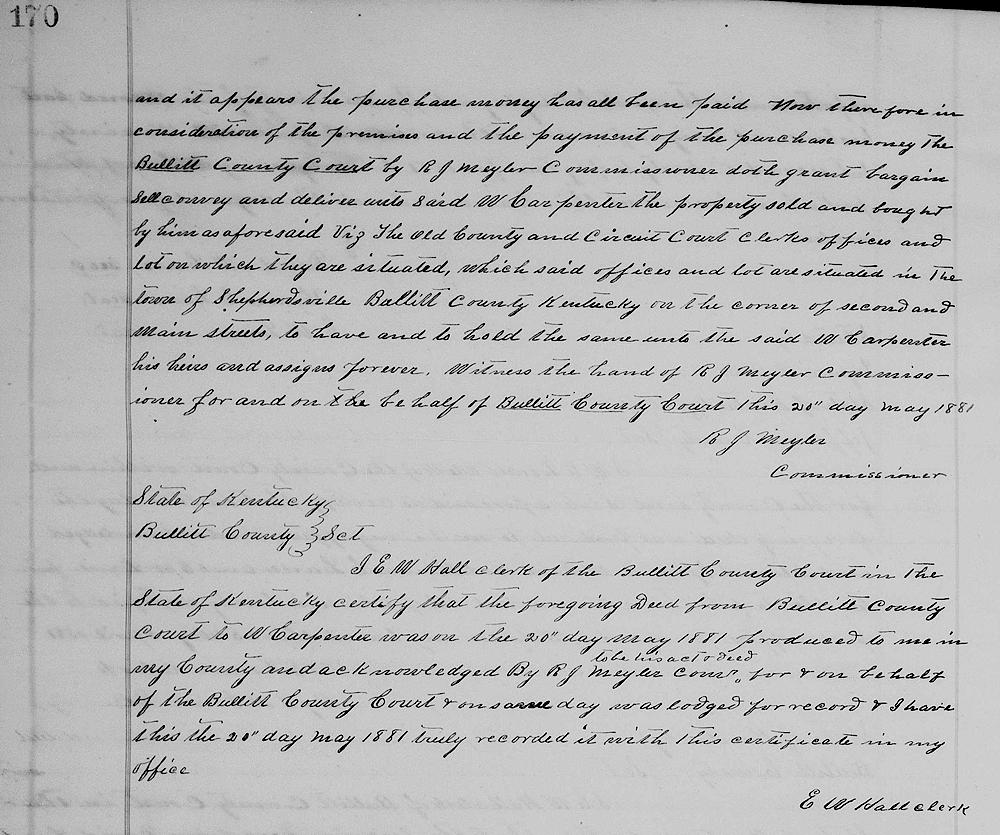 170
and it appears the purchase money has all been paid Now therefore in
consideration of the premises and the payment of the purchase money The
Bullitt County Court by R J Meyler Commissioner doth grant bargain
Sell convey and deliver unto said W Carpenter the property sold and bought
by him as aforesaid Viz The Old County and Circuit Court Clerks offices and
lot on which they are situated, which said offices and lot are situated in The
town of Shepherdsville Bullitt County Kentucky on the corner of second and
Main streets, to have and to hold the same unto the said W Carpenter
his heirs and assigns forever. Witness the hand of R J Meyler Commiss-
ioner for and on the behalf of Bullitt County Court This 20" day May 1881
R J Meyler
Commissioner
State of Kentucky
Bullitt County } Sct
I E W Hall clerk of the Bullitt County Court in The
State of Kentucky certify that the foregoing Deed from Bullitt County
Court to W Carpenter was on the 20" day May 1881 produced to me in
to be his act & deed
my County and acknowledged By R J Meyler Comr,, for & on behalf
of the Bullitt County Court & on same day was lodged for record & I have
this the 20" day May 1881 truly recorded it with this certificate in my
office
E W Hall clerk